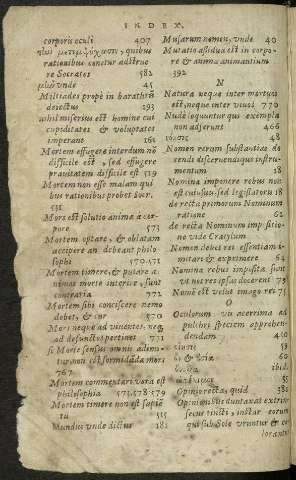 INDEX.
corporis oculi 407
μετεμψύχωσιν, quibus
rationibus conetur adstrue
re Socrates 582
unde 45
Miltiades propè in barathrū
deiectus 293
nihil miserius est homine cui
cupiditates & voluptates
imperant 161
Mortem effugere interdum nō
difficile est, sed effugere
prauitatem difficile est 519
Mortem non esse malum qui
bus rationibus probet Socr.
531
Mors est solutio animæ à cor-
pore 573
Mortem optare, & oblatam
accipere an debeant philo-
sophi 570.571
Mortem timere, & putare a-
nimas morte interire, sunt
contraria 772
Mortem sibi consciscere nemo
debet, & cur 570
Mors neque ad viuentes, neq,
ad defunctos pertinet 771
si Mortis sensus omnis adimi-
tur, non est formidāda mors
767
Mortem commentari vera est
philosophia 575.578.579
Mortem timere non est sapiē
tis 515
Mundus vnde dictus 182
Musarum nomen, vnde 40
Mutatio assidua est in corpo-
re & anima animantium
392
N
Natura neque inter mortuos
est, neque inter viuos 770
Nudè loquuntur qui exempla
non adferunt 466
48
Nomen rerum substantiæ do
cendi discernendiq́ue instru-
mentum 18
Nomina imponere rebus non
est cuiusuis, sed legislatoris 18
de recta primorum Nominum
ratione 62
de recta Nominum impositio-
ne vide Cratylum
Nomen debet rei essentiam i-
mitari & exprimere 64
Nomina rebus imposita sunt
vt nec res ipsas docerent 73
Nomē est velut imago rei 75
O
Oculorum vis acerrima ad
pulchri speciem apprehen-
dendam 410
59
60
ibid.
55
Opinio recta, quid 381
Opiniones duntaxat extrin-
secus tincti, instar eorum
qui sub Sole vruntur & co
lorantur